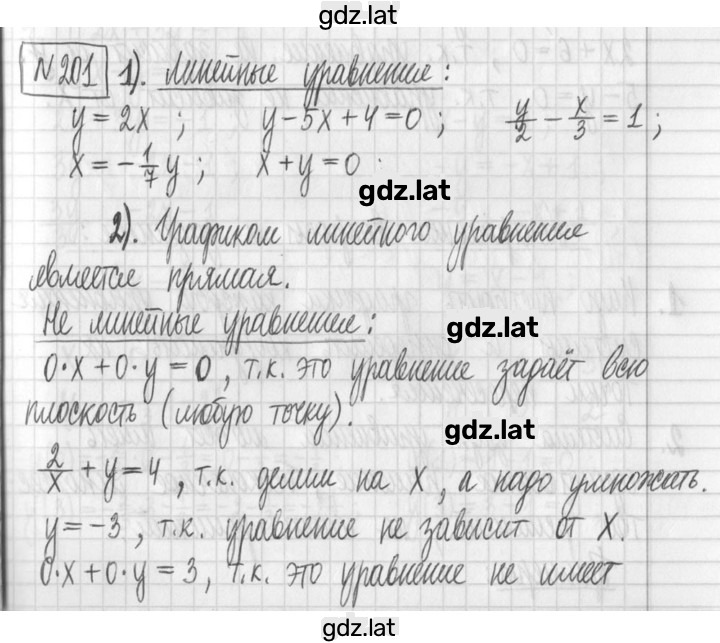 gdz.lat
№201 1). Линейные уравнение:
y = 2x ; y - 5x + 4 = 0 ; y/2 - x/3 = 1 ;
x = - 1/7 y ; x + y = 0
gdz.lat
2). Графиком линейного уравнение
является прямая.
Не линейные уравнение:
gdz.lat
0·x + 0·y = 0, т.к. это уравнение задаёт всю
плоскость (любую точку).
gdz.lat
2/x + y = 4, т.к. делим на x, а надо умножать.
y = -3, т.к. уравнение не зависит от x.
0·x + 0·y = 3, т.к. это уравнение не имеет
gdz.lat